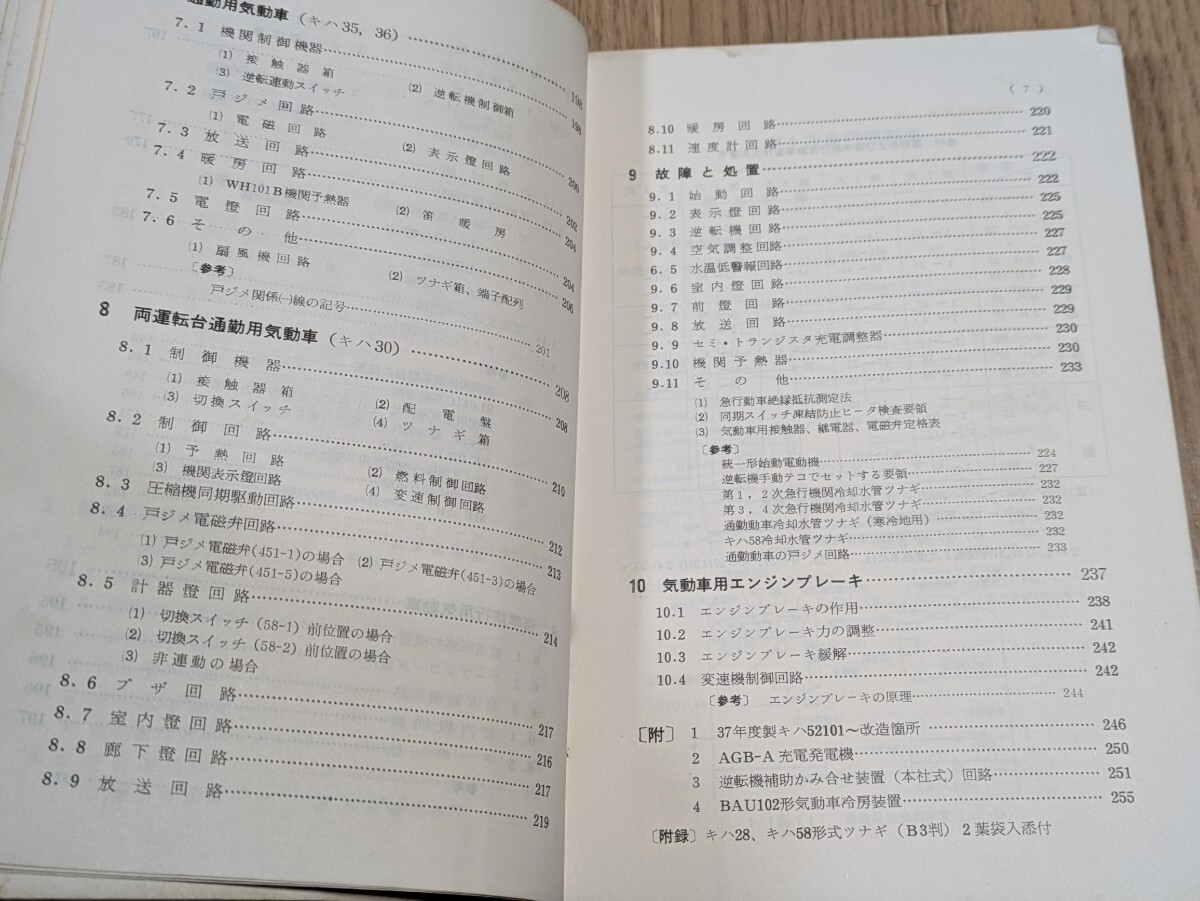 通勤用気動車(キハ35, 36)……198
7.1 機関制御機器……198
(1) 接触器箱 (2) 逆転機制御箱
(3) 逆転連動スイッチ
7.2 戸ジメ回路……200
(1) 電磁回路 (2) 表示燈回路
7.3 放送回路……202
7.4 暖房回路……204
(1) WH101B機関予熱器 (2) 笛暖房
7.5 電燈回路……204
7.6 その他……206
(1) 扇風機回路 (2) ツナギ箱、端子配列
〔参考〕
戸ジメ関係㈠線の記号……201
8 両運転台通勤用気動車(キハ30)……208
8.1 制御機器……208
(1) 接触器箱 (2) 配電盤
(3) 切換スイッチ (4) ツナギ箱
8.2 制御回路……210
(1) 予熱回路 (2) 燃料制御回路
(3) 機関表示燈回路 (4) 変速制御回路
8.3 圧縮機同期駆動回路……212
8.4 戸ジメ電磁弁回路……213
(1) 戸ジメ電磁弁(451-1)の場合 (2) 戸ジメ電磁弁(451-3)の場合
(3) 戸ジメ電磁弁(451-5)の場合
8.5 計器燈回路……214
(1) 切換スイッチ(58-1)前位置の場合
(2) 切換スイッチ(58-2)前位置の場合
(3) 非連動の場合
8.6 ブザ回路……217
8.7 室内燈回路……216
8.8 廊下燈回路……217
8.9 放送回路……219
(7)
8.10 暖房回路……220
8.11 速度計回路……221
9 故障と処置……222
9.1 始動回路……222
9.2 表示燈回路……225
9.3 逆転機回路……225
9.4 空気調整回路……227
6.5 水温低警報回路……227
9.6 室内燈回路……228
9.7 前燈回路……229
9.8 放送回路……229
9.9 セミ・トランジスタ充電調整器……230
9.10 機関予熱器……230
9.11 その他……233
(1) 急行動車絶縁抵抗測定法
(2) 同期スイッチ凍結防止ヒータ検査要領
(3) 気動車用接触器、継電器、電磁弁定格表
〔参考〕
統一形始動電動機……224
逆転機手動テコでセットする要領……227
第1, 2次急行機関冷却水管ツナギ……232
第3, 4次急行機関冷却水管ツナギ……232
通勤動車冷却水管ツナギ(寒冷地用)……232
キハ58冷却水管ツナギ……232
通勤動車の戸ジメ回路……233
10 気動車用エンジンブレーキ……237
10.1 エンジンブレーキの作用……238
10.2 エンジンブレーキ力の調整……241
10.3 エンジンブレーキ緩解……242
10.4 変速機制御回路……242
〔参考〕 エンジンブレーキの原理……244
〔附〕 1 37年度製キハ52101~改造箇所……246
2 AGB-A 充電発電機……250
3 逆転機補助かみ合せ装置(本社式)回路……251
4 BAU102形気動車冷房装置……255
〔附録〕キハ28、キハ58形式ツナギ(B3判) 2葉袋入添付